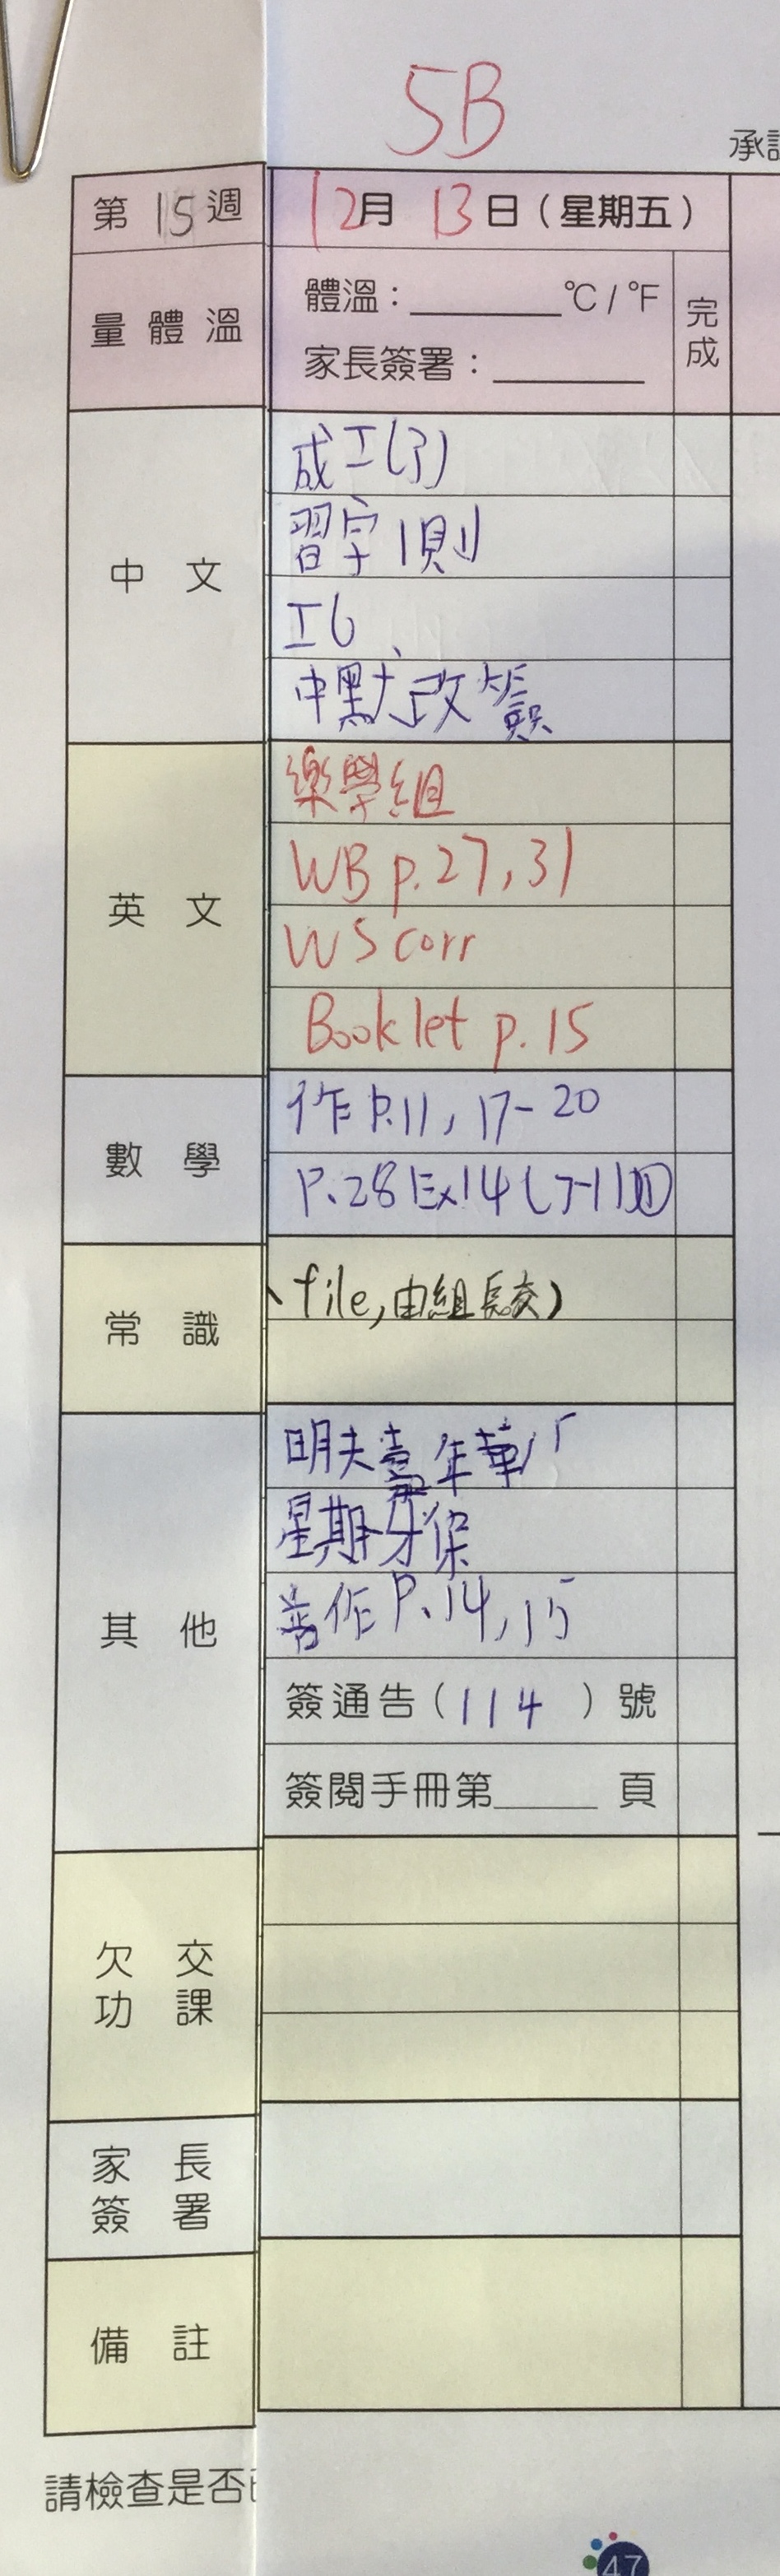 5B
承
第15週
12月13日（星期五）
量體溫
體溫：______℃/℉
家長簽署：______
完成
中文
成工(3)
習字1則
工6
中默改簽
英文
樂學組
WB p.27,31
WS corr
Booklet p.15
數學
作P.11, 17-20
P.28 Ex14 (7-11)
常識
file,由組長交)
其他
明天嘉年華
星期牙保
普作P.14,15
簽通告(114)號
簽閱手冊第____頁
欠交功課
家長簽署
備註
請檢查是否
47